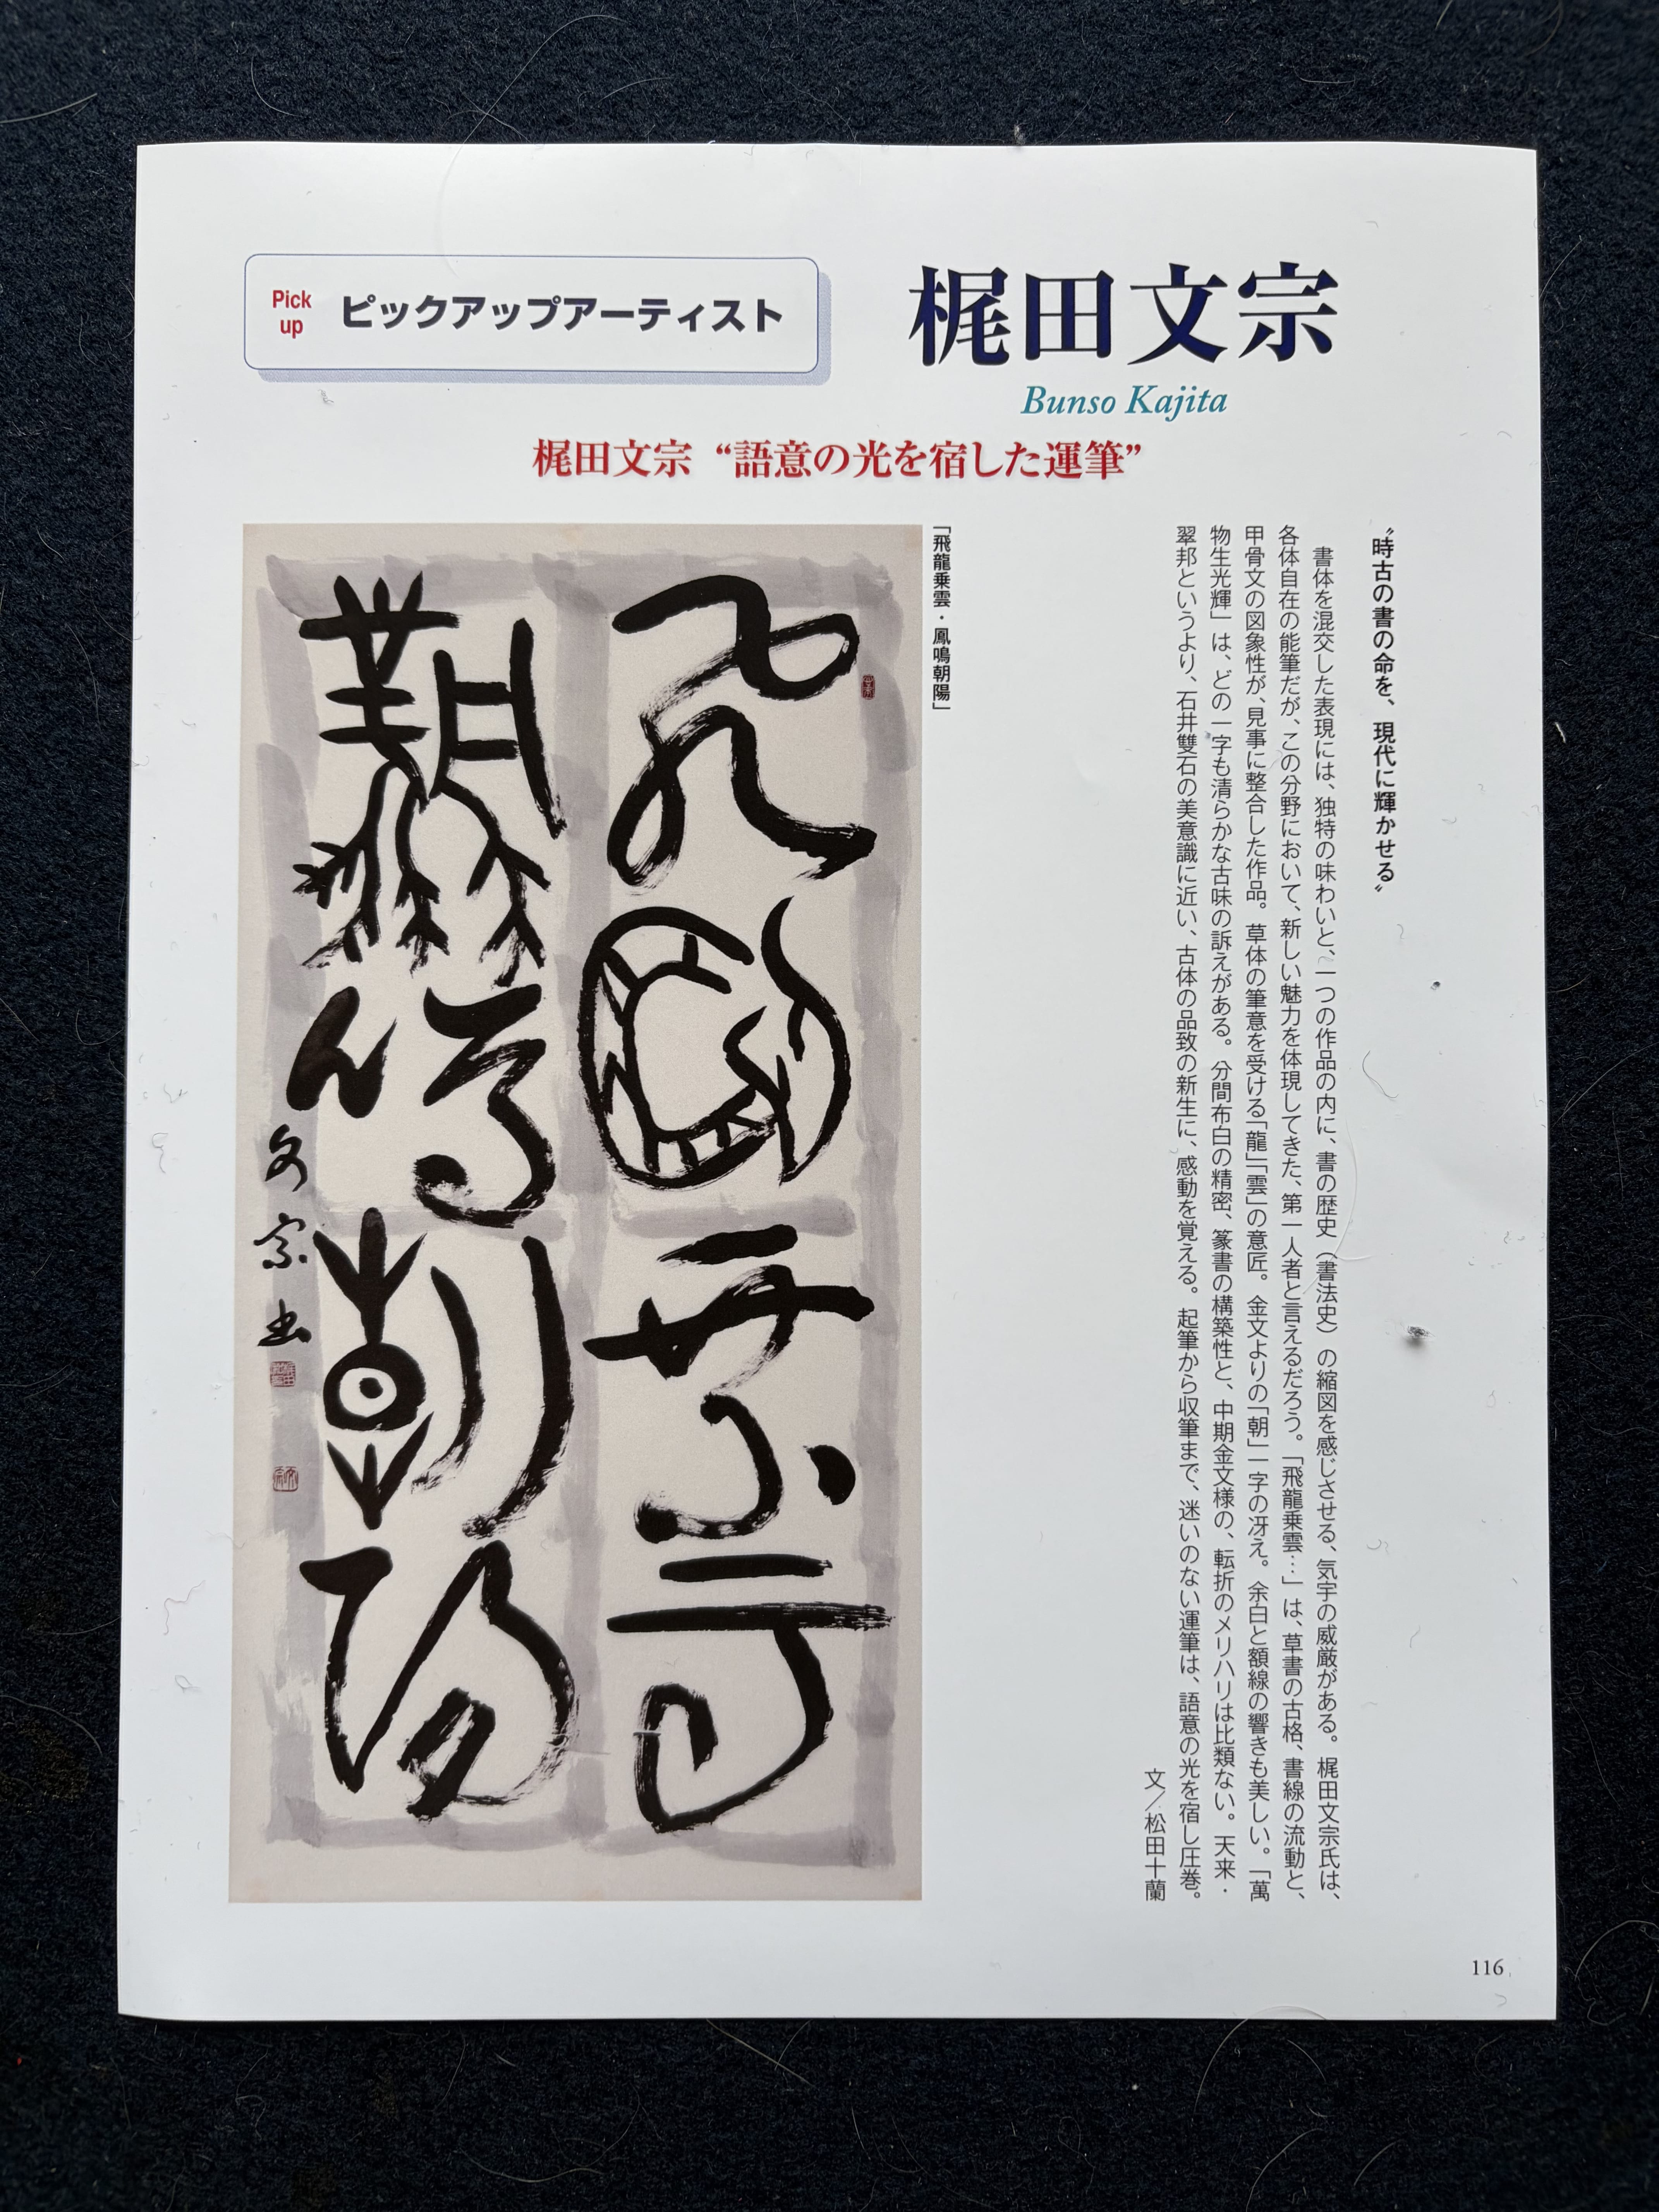 Pick
up
ピックアップアーティスト
梶田文宗
Bunso Kajita
梶田文宗 “語意の光を宿した運筆”
〝時古の書の命を、現代に輝かせる〟
書体を混交した表現には、独特の味わいと、一つの作品の内に、書の歴史（書法史）の縮図を感じさせる、気宇の威厳がある。梶田文宗氏は、
各体自在の能筆だが、この分野において、新しい魅力を体現してきた、第一人者と言えるだろう。「飛龍乗雲…」は、草書の古格、書線の流動と、
甲骨文の図象性が、見事に整合した作品。草体の筆意を受ける「龍」「雲」の意匠。金文よりの「朝」一字の冴え。余白と額線の響きも美しい。「萬
物生光輝」は、どの一字も清らかな古味の訴えがある。分間布白の精密、篆書の構築性と、中期金文様の、転折のメリハリは比類ない。天来・
翠邦というより、石井雙石の美意識に近い、古体の品致の新生に、感動を覚える。起筆から収筆まで、迷いのない運筆は、語意の光を宿し圧巻。
文／松田十蘭
「飛龍乗雲・鳳鳴朝陽」
飛龍乗雲
鳳鳴朝陽
文宗書
116